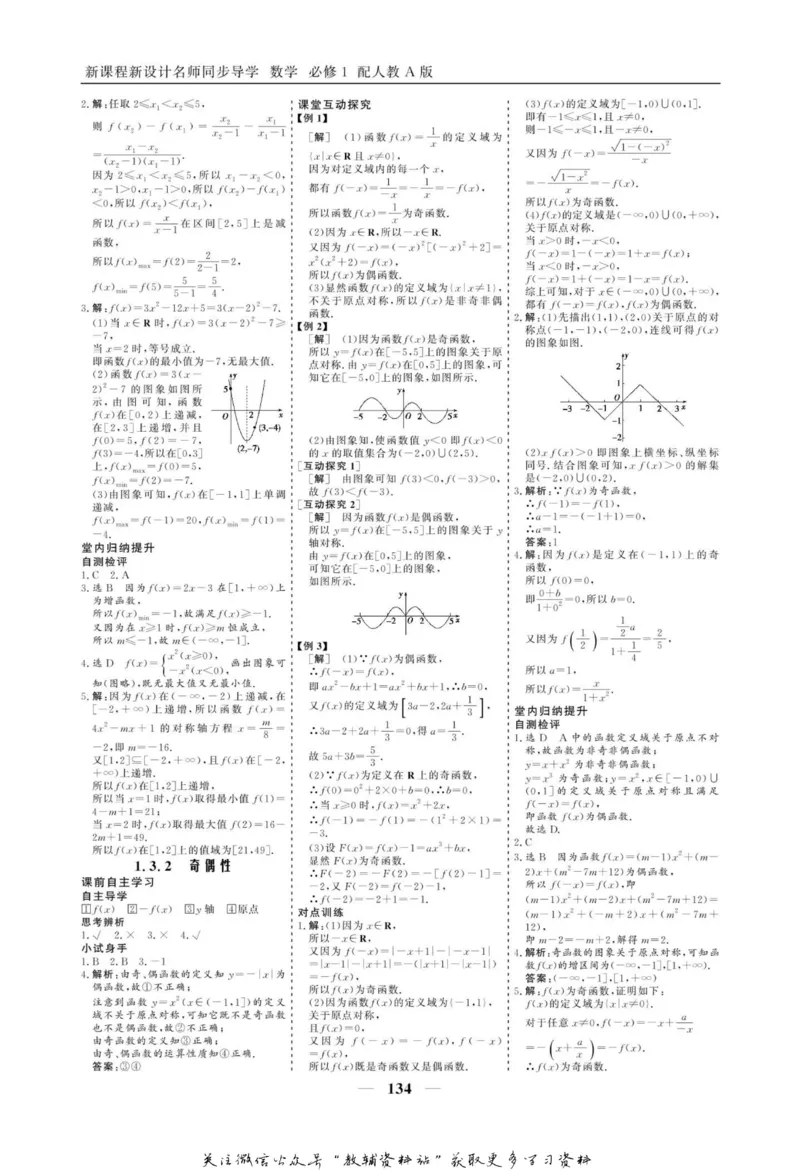 新课程新设计名师同步导学 数学 必修1 配人教A版
2.解:任取2≤x₁<x₂≤5,
则 f(x₂)-f(x₁)=x₂/(x₂-1)-x₁/(x₁-1)
=(x₁-x₂)/((x₂-1)(x₁-1)).
因为2≤x₁<x₂≤5,所以x₁-x₂<0,
x₂-1>0,x₁-1>0,所以f(x₂)-f(x₁)
<0,所以f(x₂)<f(x₁),
所以f(x)=x/(x-1)在区间[2,5]上是减
函数,
所以f(x)max=f(2)=2/(2-1)=2,
f(x)min=f(5)=5/(5-1)=5/4.
3.解:f(x)=3x²-12x+5=3(x-2)²-7.
(1)当x∈R时,f(x)=3(x-2)²-7≥
-7,
当x=2时,等号成立.
即函数f(x)的最小值为-7,无最大值.
(2)函数f(x)=3(x-
2)²-7的图象如图所
示,由图可知,函数
f(x)在[0,2)上递减,
在[2,3]上递增,并且
f(0)=5,f(2)=-7,
f(3)=-4,所以在[0,3]
上,f(x)max=f(0)=5,
f(x)min=f(2)=-7.
y
5
O
2
x
(3,-4)
(2,-7)
(3)由图象可知,f(x)在[-1,1]上单调
递减,
f(x)max=f(-1)=20,f(x)min=f(1)=
-4.
堂内归纳提升
自测检评
1.C 2.A
3.选B 因为f(x)=2x-3在[1,+∞)上
为增函数,
所以f(x)min=-1,故满足f(x)≥-1.
又因为在x≥1时,f(x)≥m恒成立,
所以m≤-1,故m∈(-∞,-1].
4.选D f(x)={x²(x≥0), -x²(x<0), 画出图象可
知(图略),既无最大值又无最小值.
5.解:因为f(x)在(-∞,-2)上递减,在
[-2,+∞)上递增,所以函数f(x)=
4x²-mx+1的对称轴方程x=m/8=
-2,即m=-16.
又[1,2]⊆[-2,+∞),且f(x)在[-2,
+∞)上递增.
所以f(x)在[1,2]上递增,
所以当x=1时,f(x)取得最小值f(1)=
4-m+1=21;
当x=2时,f(x)取得最大值f(2)=16-
2m+1=49.
所以f(x)在[1,2]上的值域为[21,49].
1.3.2 奇偶性
课前自主学习
自主导学
1 f(x) 2 -f(x) 3 y轴 4 原点
思考辨析
1.√ 2.× 3.× 4.√
小试身手
1.B 2.B 3.-1
4.解析:由奇、偶函数的定义知y=-|x|为
偶函数,故①不正确;
注意到函数y=x²(x∈(-1,1])的定义
域不关于原点对称,可知它既不是奇函数
也不是偶函数,故②不正确;
由奇函数的定义知③正确;
由奇、偶函数的运算性质知④正确.
答案:③④
课堂互动探究
【例1】
[解] (1)函数f(x)=1/x的定义域为
{x|x∈R且x≠0},
因为对定义域内的每一个x,
都有f(-x)=1/-x=-1/x=-f(x),
所以函数f(x)=1/x为奇函数.
(2)因为x∈R,所以-x∈R.
又因为f(-x)=(-x)²[(-x)²+2]=
x²(x²+2)=f(x),
所以f(x)为偶函数.
(3)显然函数f(x)的定义域为{x|x≠1},
不关于原点对称,所以f(x)是非奇非偶
函数.
【例2】
[解] (1)因为函数f(x)是奇函数,
所以y=f(x)在[-5,5]上的图象关于原
点对称.由y=f(x)在[0,5]上的图象,可
知它在[-5,0]上的图象,如图所示.
y
-5
-2
O
2
5
x
(2)由图象知,使函数值y<0即f(x)<0
的x的取值集合为(-2,0)∪(2,5).
[互动探究1]
[解] 由图象可知f(3)<0,f(-3)>0,
故f(3)<f(-3).
[互动探究2]
[解] 因为函数f(x)是偶函数,
所以y=f(x)在[-5,5]上的图象关于y
轴对称.
由y=f(x)在[0,5]上的图象,
可知它在[-5,0]上的图象,
如图所示.
y
-5
-2
O
2
5
x
【例3】
[解] (1)∵f(x)为偶函数,
∴f(-x)=f(x),
即ax²-bx+1=ax²+bx+1,∴b=0,
又f(x)的定义域为[3a-2,2a+1/3],
∴3a-2+2a+1/3=0,得a=1/3.
故5a+3b=5/3.
(2)∵f(x)为定义在R上的奇函数,
∴f(0)=0²+2×0+b=0,∴b=0,
∴当x≥0时,f(x)=x²+2x,
∴f(-1)=-f(1)=-(1²+2×1)=
-3.
(3)设F(x)=f(x)-1=ax³+bx,
显然F(x)为奇函数.
∴F(-2)=-F(2)=-[f(2)-1]=
-2,又F(-2)=f(-2)-1,
∴f(-2)=-2+1=-1.
对点训练
1.解:(1)因为x∈R,
所以-x∈R,
又因为f(-x)=|-x+1|-|-x-1|
=|x-1|-|x+1|=-(|x+1|-|x-1|)
=-f(x),
所以f(x)为奇函数.
(2)因为函数f(x)的定义域为{-1,1},
关于原点对称,
且f(x)=0,
又因为f(-x)=-f(x),f(-x)
=f(x),
所以f(x)既是奇函数又是偶函数.
(3)f(x)的定义域为[-1,0)∪(0,1].
即有-1≤x≤1,且x≠0,
则-1≤-x≤1,且-x≠0,
又因为f(-x)=√(1-(-x)²)/-x
=-√(1-x²)/x=-f(x).
所以f(x)为奇函数.
(4)f(x)的定义域是(-∞,0)∪(0,+∞),
关于原点对称.
当x>0时,-x<0,
f(-x)=1-(-x)=1+x=f(x);
当x<0时,-x>0,
f(-x)=1+(-x)=1-x=f(x).
综上可知,对于x∈(-∞,0)∪(0,+∞),
都有f(-x)=f(x),f(x)为偶函数.
2.解:(1)先描出(1,1),(2,0)关于原点的对
称点(-1,-1),(-2,0),连线可得f(x)
的图象如图.
y
2
1
-3
-2
-1
O
1
2
3
x
-1
-2
(2)xf(x)>0即图象上横坐标、纵坐标
同号.结合图象可知,xf(x)>0的解集
是(-2,0)∪(0,2).
3.解析:∵f(x)为奇函数,
∴f(-1)=-f(1),
∴a-1=-(-1+1)=0,
∴a=1.
答案:1
4.解:因为f(x)是定义在(-1,1)上的奇
函数,
所以f(0)=0,
即(0+b)/(1+0²)=0,所以b=0.
又因为f(1/2)=(1/2 a)/(1+1/4)=2/5,
所以a=1,
所以f(x)=x/(1+x²).
堂内归纳提升
自测检评
1.选D A中的函数定义域关于原点不对
称,故函数为非奇非偶函数;
y=x+x²为非奇非偶函数;
y=x³为奇函数;y=x²,x∈[-1,0)∪
(0,1]的定义域关于原点对称且满足
f(-x)=f(x),
即函数f(x)为偶函数.
故选D.
2.C
3.选B 因为函数f(x)=(m-1)x²+(m-
2)x+(m²-7m+12)为偶函数,
所以f(-x)=f(x),即
(m-1)x²+(m-2)x+(m²-7m+12)=
(m-1)x²+(-m+2)x+(m²-7m+
12),
即m-2=-m+2,解得m=2.
4.解析:奇函数的图象关于原点对称,可知函
数f(x)的增区间为(-∞,-1],[1,+∞).
答案:(-∞,-1],[1,+∞)
5.解:f(x)为奇函数,证明如下:
f(x)的定义域为{x|x≠0}.
对于任意x≠0,f(-x)=-x+a/-x
=-(x+a/x)=-f(x).
∴f(x)为奇函数.
— 134 —
关注微信公众号“教辅资料站”获取更多学习资料